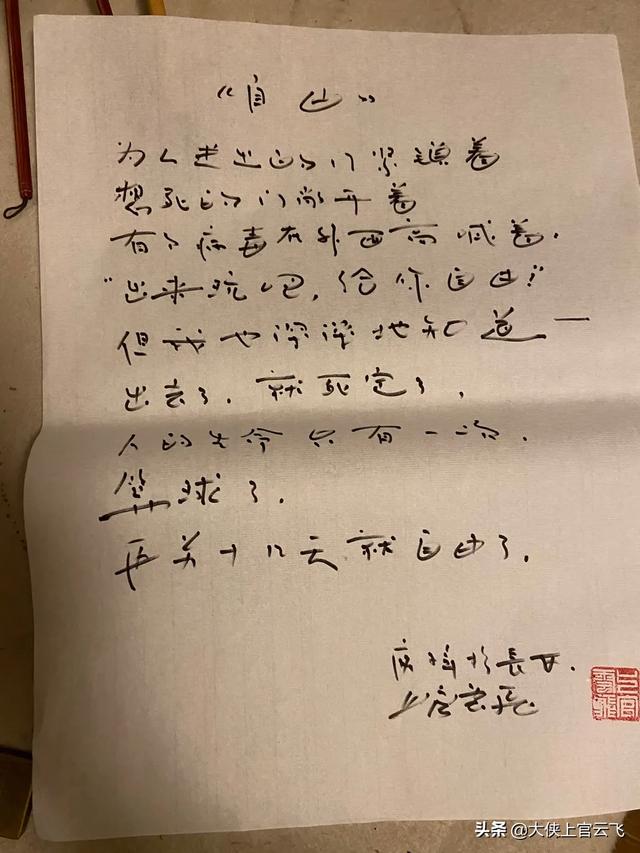 “自由”
为人进出的门紧锁着
想死的门敞开着
有个病毒在外面高喊着.
“出来玩吧,给你自由!”
但我也深深地知道一
出去了.就死定了,
人的生命只有一次.
算球了.
再关十几天就自由了.
庚
上官云飞
头条 @大侠上官云飞